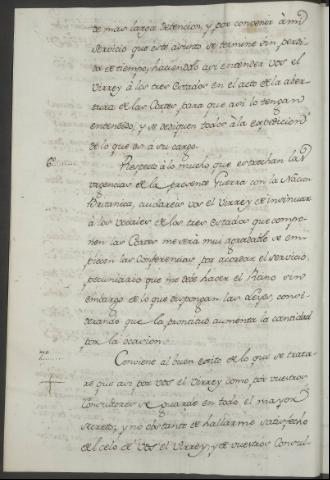 de mas larga detencion, y por convenir à mi
servicio que este asunto se termine sin perdi-
da de tiempo, haciendolo asi entender vos el
Virrey à los tres Estados en el acto de la aber-
tura de las Cortes, para que asi lo tengan
entendido, y se dediquen todos à la expedicion
de lo que es à su cargo.
6º Respecto à lo mucho que estrechan las
urgencias de la presente Guerra con la Nacion
Britanica, cuidareis vos el Virrey de insinuar
à los vocales de los tres estados que compo-
nen las Cortes me será mui agradable se em-
piecen las Conferencias por acordar el servicio
pecuniario que me debe hacer el Reino sin
embargo de lo que dispongan las Leyes, consi-
derando que la prontitud aumenta la cantidad
por la ocasion.
7º Conviene al buen exito de lo que se trata-
re que asi por vos el Virrey como por vuestros
Consultores se guarde en todo el mayor
secreto; y no obstante de hallarme satisfecho
del celo de vos el Virrey, y de vuestros Consul-